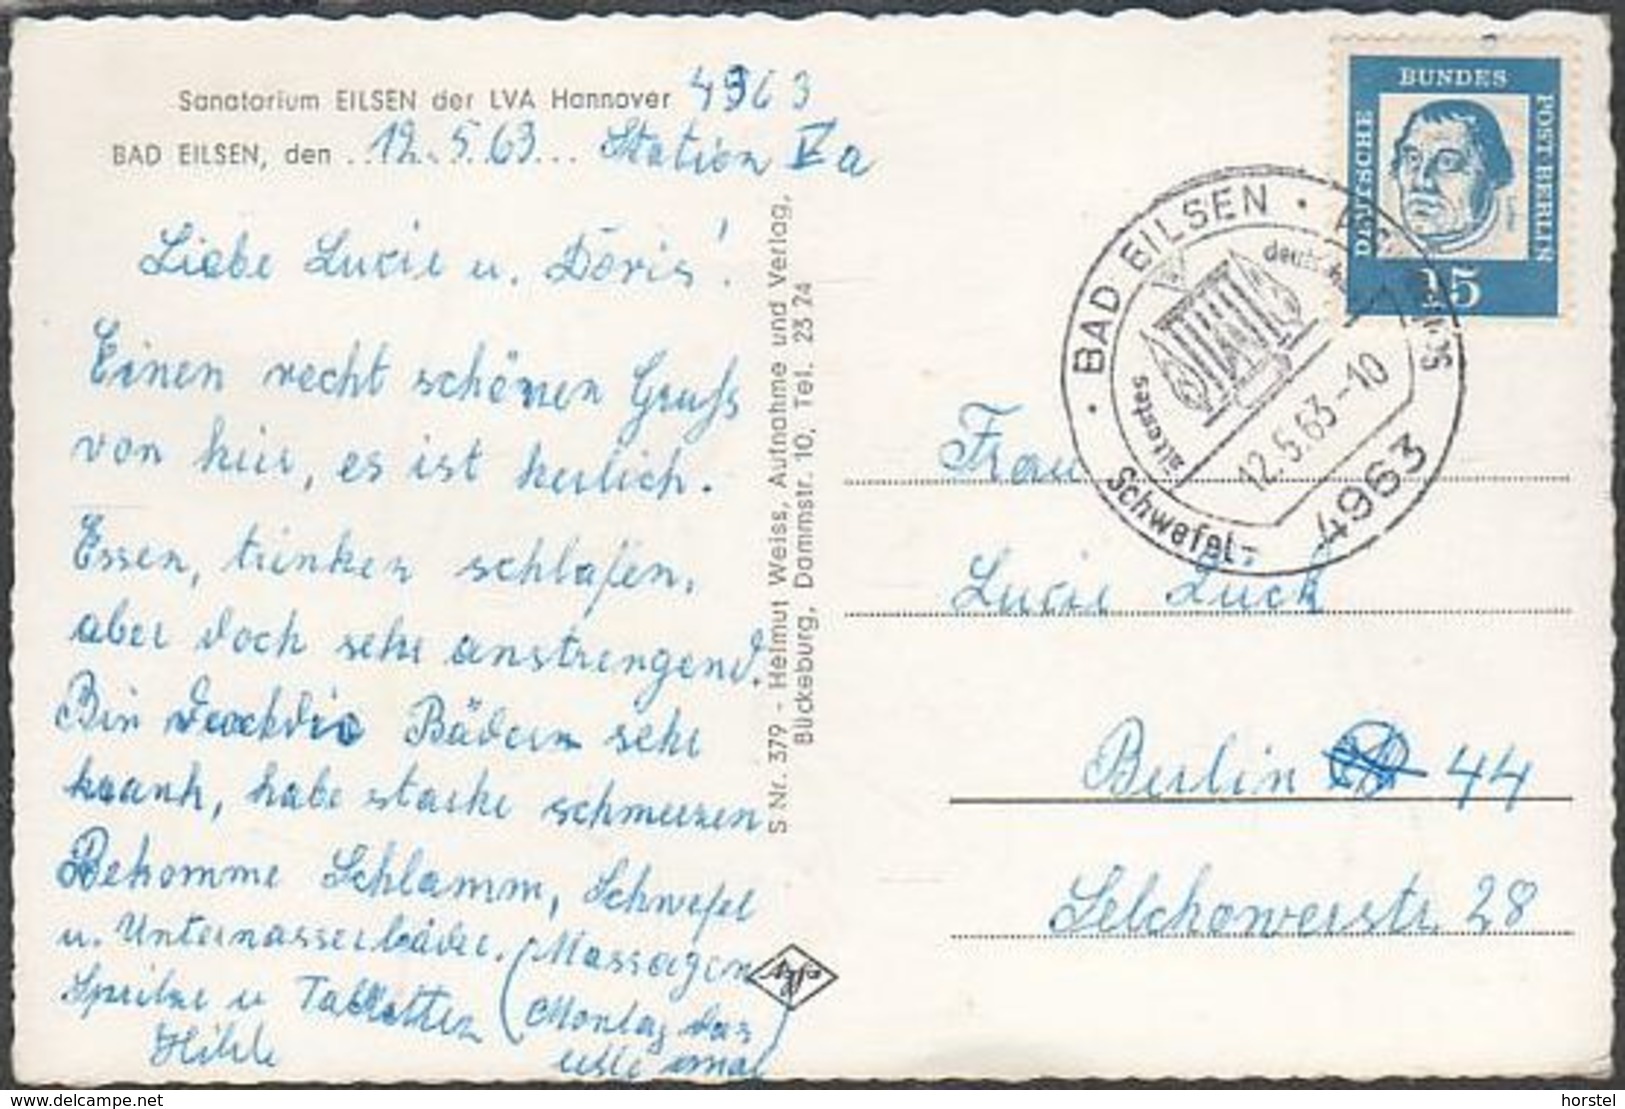 Sanatorium EILSEN der LVA Hannover 4963
BAD EILSEN, den 12.5.63. Station Va
Liebe Lucie u. Doris!
Einen recht schönen Gruß
von hier, es ist herlich.
Essen, trinken schlafen,
aber doch sehr anstrengend.
Bin Bädern sehr
krank, habe starke schmerzen
Bekomme Schlamm, Schwefel
u. Unterwasserbäder. (Massagen)
Spritze u Tabletten (Montag das
erste mal)
S Nr. 379 - Helmut Weiss, Aufnahme und Verlag,
Bückeburg, Dammstr. 10, Tel. 23 24
DEUTSCHE
BUNDES
POST BERLIN
15
BAD EILSEN
deutschlands
ältestes
Schwefel-
12.5.63-10
4963
Frau
Lucie Luck
Berlin 44
Selchowerstr. 28
www.delcampe.net
horstel